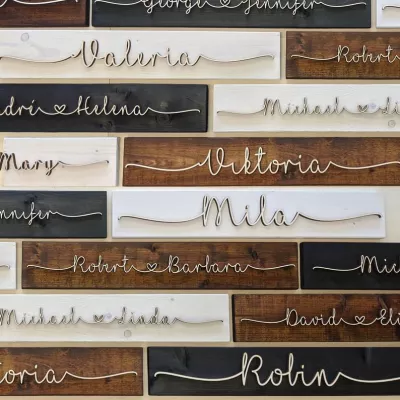 George Jennifer
Valeria Robert
André ♡ Helena Michael ♡
Mary Viktoria
Jennifer Mila
Robert ♡ Barbara
Michael ♡ Linda David ♡
Viktoria Robin